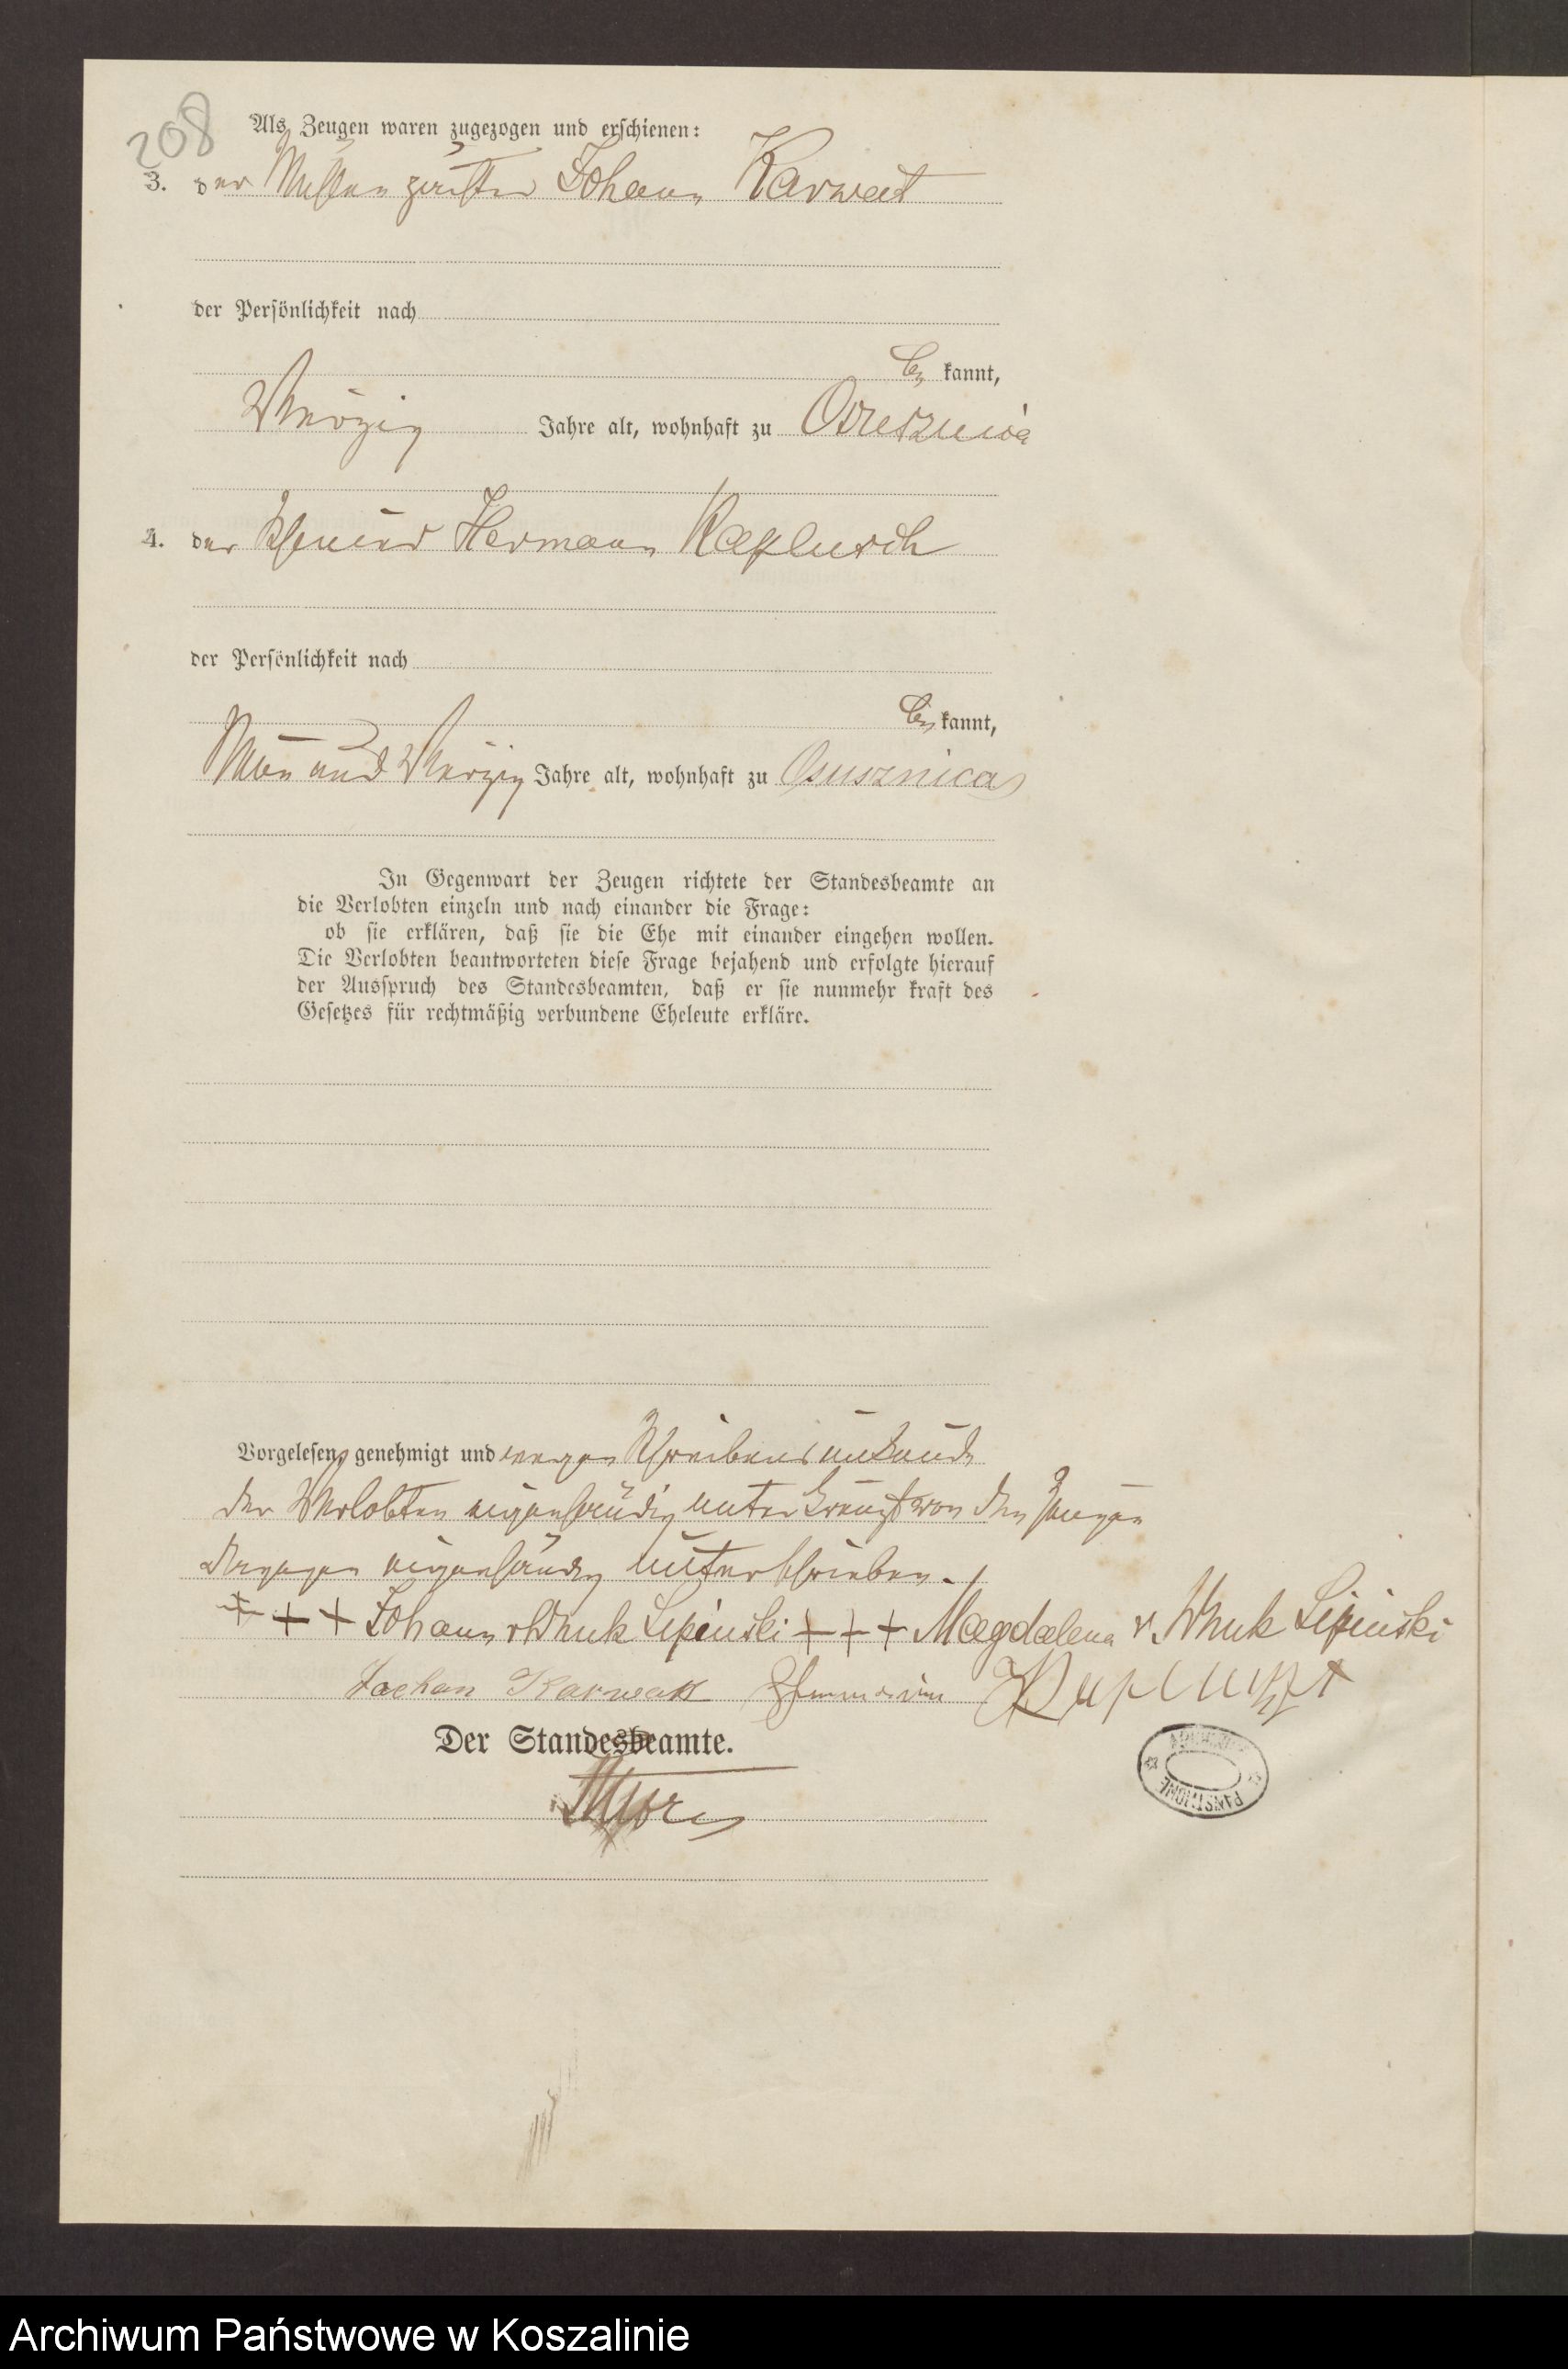 208
Als Zeugen waren zugezogen und erschienen:
3. der Johann Karwat
der Persönlichkeit nach
be kannt,
Vierzig Jahre alt, wohnhaft zu
4. der Hermann
der Persönlichkeit nach
be kannt,
Neun und Vierzig Jahre alt, wohnhaft zu Osusznica
In Gegenwart der Zeugen richtete der Standesbeamte an
die Verlobten einzeln und nach einander die Frage:
ob sie erklären, daß sie die Ehe mit einander eingehen wollen.
Die Verlobten beantworteten diese Frage bejahend und erfolgte hierauf
der Ausspruch des Standesbeamten, daß er sie nunmehr kraft des
Gesetzes für rechtmäßig verbundene Eheleute erkläre.
Vorgelesen, genehmigt und wegen Schreibens unkunde
der Verlobten eigenhändig unterkreuzt von den Zeugen
dagegen eigenhändig unterschrieben.
+ + + Johann v Wnuk Lipinski + + + Magdalena v. Wnuk Lipinski
Karwatt
Der Standesbeamte.
Archiwum Państwowe w Koszalinie